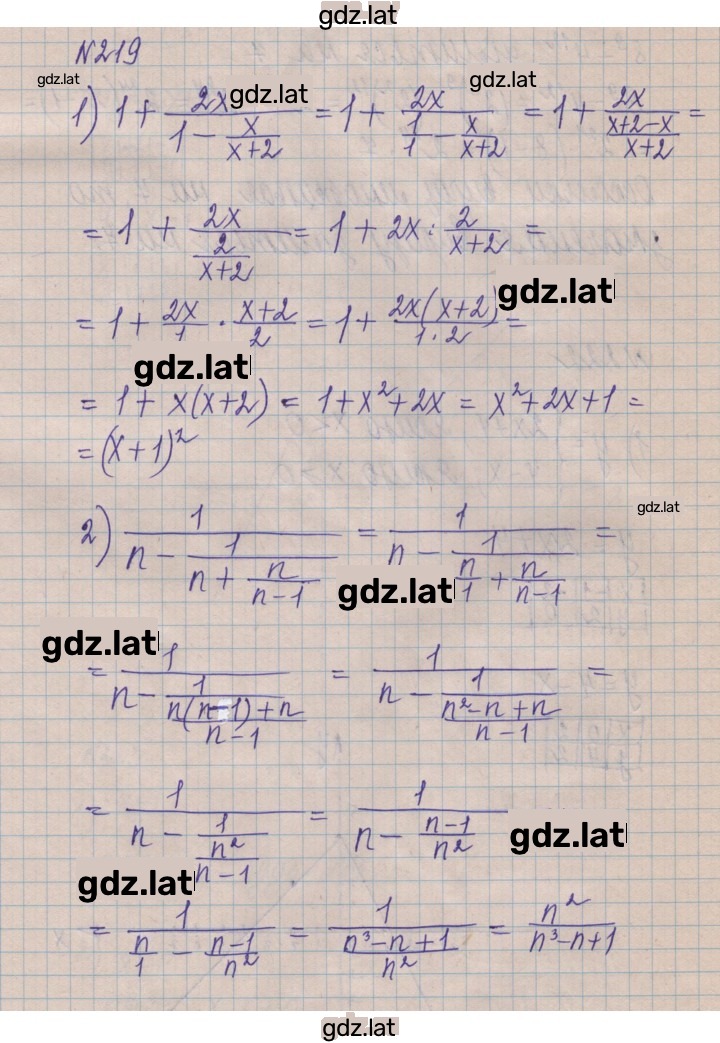 gdz.lat
№219
gdz.lat gdz.lat gdz.lat
1) 1 + 2x/(1 - x/(x+2)) = 1 + 2x/(1/1 - x/(x+2)) = 1 + 2x/((x+2-x)/(x+2)) =
= 1 + 2x/(2/(x+2)) = 1 + 2x : 2/(x+2) =
gdz.lat
= 1 + 2x/1 · (x+2)/2 = 1 + 2x(x+2)/(1·2) =
gdz.lat
= 1 + x(x+2) = 1 + x² + 2x = x² + 2x + 1 =
= (x+1)²
gdz.lat
2) 1/(n - 1/(n + n/(n-1))) = 1/(n - 1/(n/1 + n/(n-1))) =
gdz.lat
gdz.lat
= 1/(n - 1/((n(n-1)+n)/(n-1))) = 1/(n - 1/((n²-n+n)/(n-1))) =
= 1/(n - 1/(n²/(n-1))) = 1/(n - (n-1)/n²)
gdz.lat
gdz.lat
= 1/(n/1 - (n-1)/n²) = 1/((n³-n+1)/n²) = n²/(n³-n+1)
gdz.lat